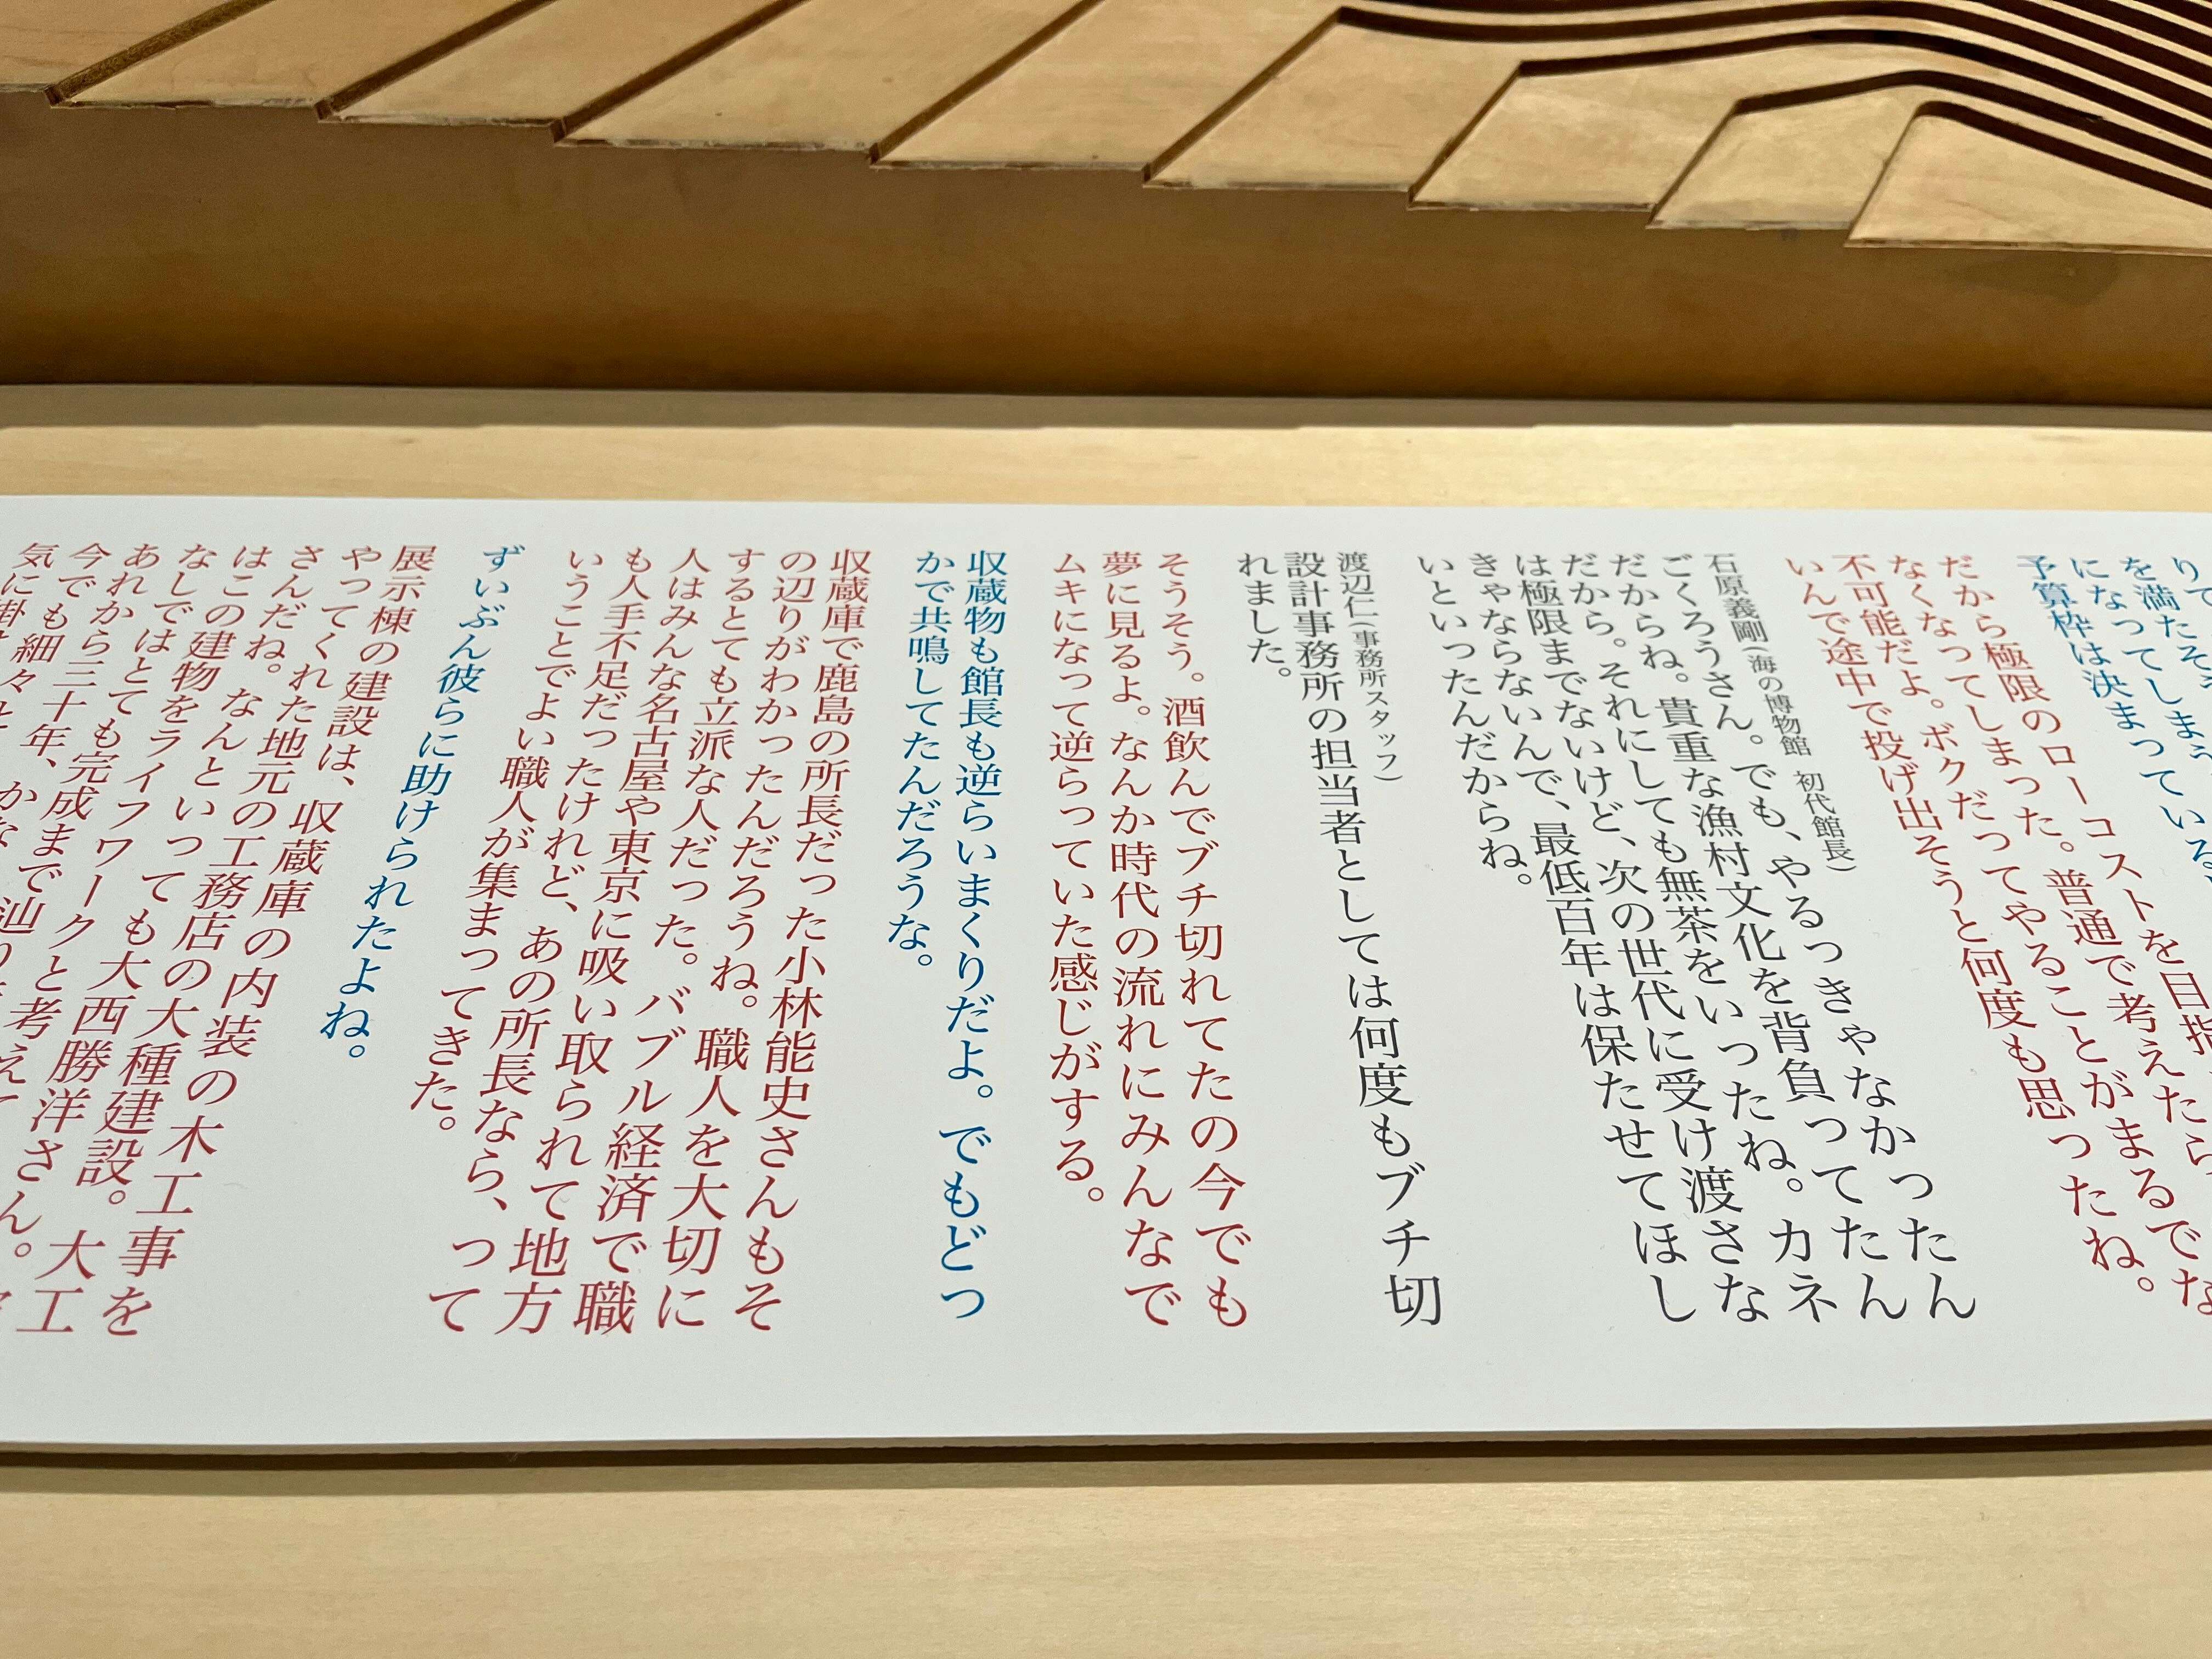 りて
を満たそ
になってしまう
予算枠は決まっている
だから極限のローコストを目指
なくなってしまった。普通で考えたら
不可能だよ。ボクだってやることがまるでな
いんで途中で投げ出そうと何度も思ったね。
石原義剛（海の博物館　初代館長）
ごくろうさん。でも、やるっきゃなかったん
だからね。貴重な漁村文化を背負ってたん
だから。それにしても無茶をいったね。カネ
は極限までないけど、次の世代に受け渡さな
きゃならないんで、最低百年は保たせてほし
いといったんだからね。
渡辺仁（事務所スタッフ）
設計事務所の担当者としては何度もブチ切
れました。
そうそう。酒飲んでブチ切れてたの今でも
夢に見るよ。なんか時代の流れにみんなで
ムキになって逆らっていた感じがする。
収蔵物も館長も逆らいまくりだよ。でもどっ
かで共鳴してたんだろうな。
収蔵庫で鹿島の所長だった小林能史さんもそ
の辺りがわかったんだろうね。職人を大切に
するとても立派な人だった。バブル経済で職
人はみんな名古屋や東京に吸い取られて地方
も人手不足だったけれど、あの所長なら、って
いうことでよい職人が集まってきた。
ずいぶん彼らに助けられたよね。
展示棟の建設は、収蔵庫の内装の木工事を
やってくれた地元の工務店の大種建設。大工
さんだね。なんといっても大西勝洋さん。
はこの建物をライフワークと考えて
なしではとても完成まで辿り
あれから三十年、かな
今でも細々と
気に掛け